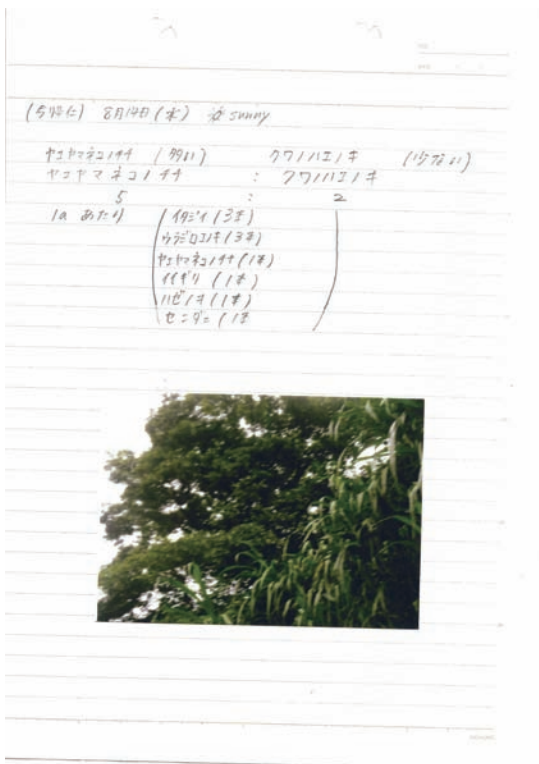 8月14日(水) sunny
ヤエヤマネコノチチ (多い) クワノハエノキ (少ない)
ヤエヤマネコノチチ : クワノハエノキ
5 : 2
1a あたり (イタジイ(3本)
ウラジロエノキ(3本)
ヤエヤマネコノチチ(1本)
イイギリ(1本)
ハゼノキ(1本)
センダン(1本)